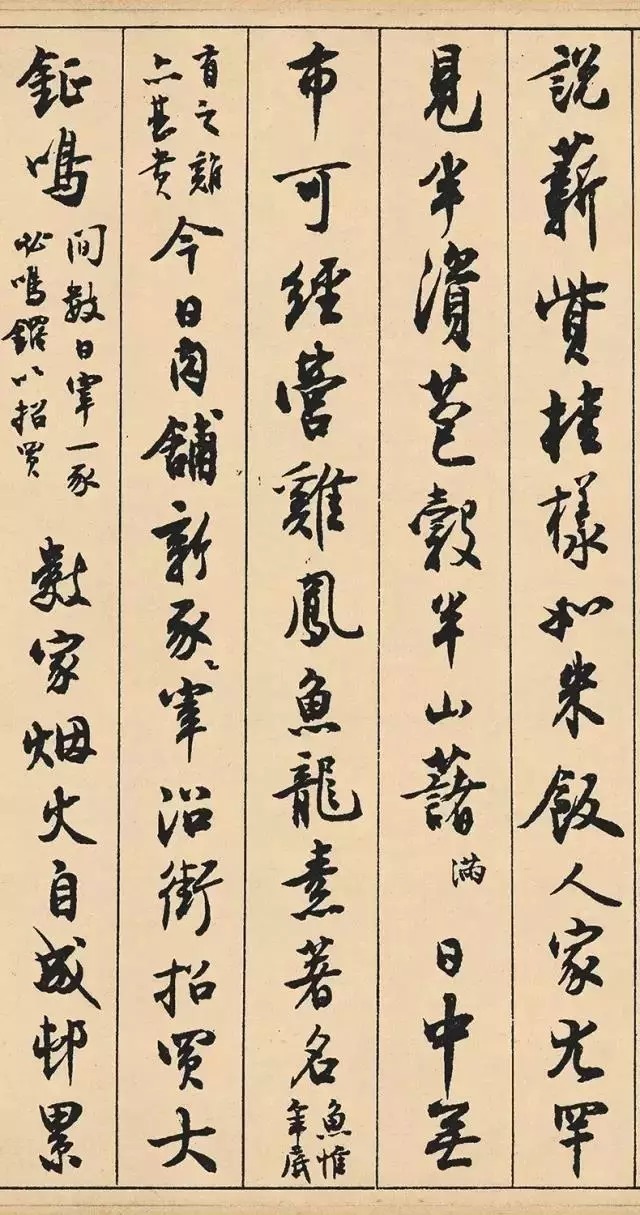 說薪貲桂樣如米飯人家尤罕
見半資苞穀半山藷滿 日中無
市可經營雞鳳魚龍素著名魚惟年底
有之雞亦甚貴今日肉舖新豕宰沿街招買大
鉦鳴間數日宰一豕必鳴鑼以招買 數家烟火自成邨累